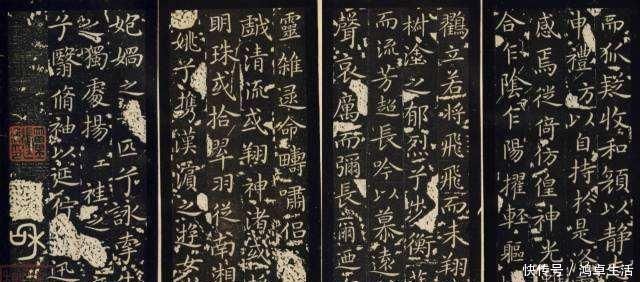 而狐疑收和顔以静
申禮防以自持於是洛
感焉徙倚仿偟神光
合乍陰乍陽擢輕軀
鸖立若將飛飛而未翔
椒塗之郁烈兮步衡薄
而流芳超長吟以慕遠
聲哀厲而彌長爾迺
靈雜遝命疇嘯侣
戲清流或翔神渚或
明珠或拾翠羽從南湘
兮攜漢濱之遊女
媧之匹兮詠牽
之獨處揚袿之
兮翳脩袖以延佇迅
快传号／鸿卓生活